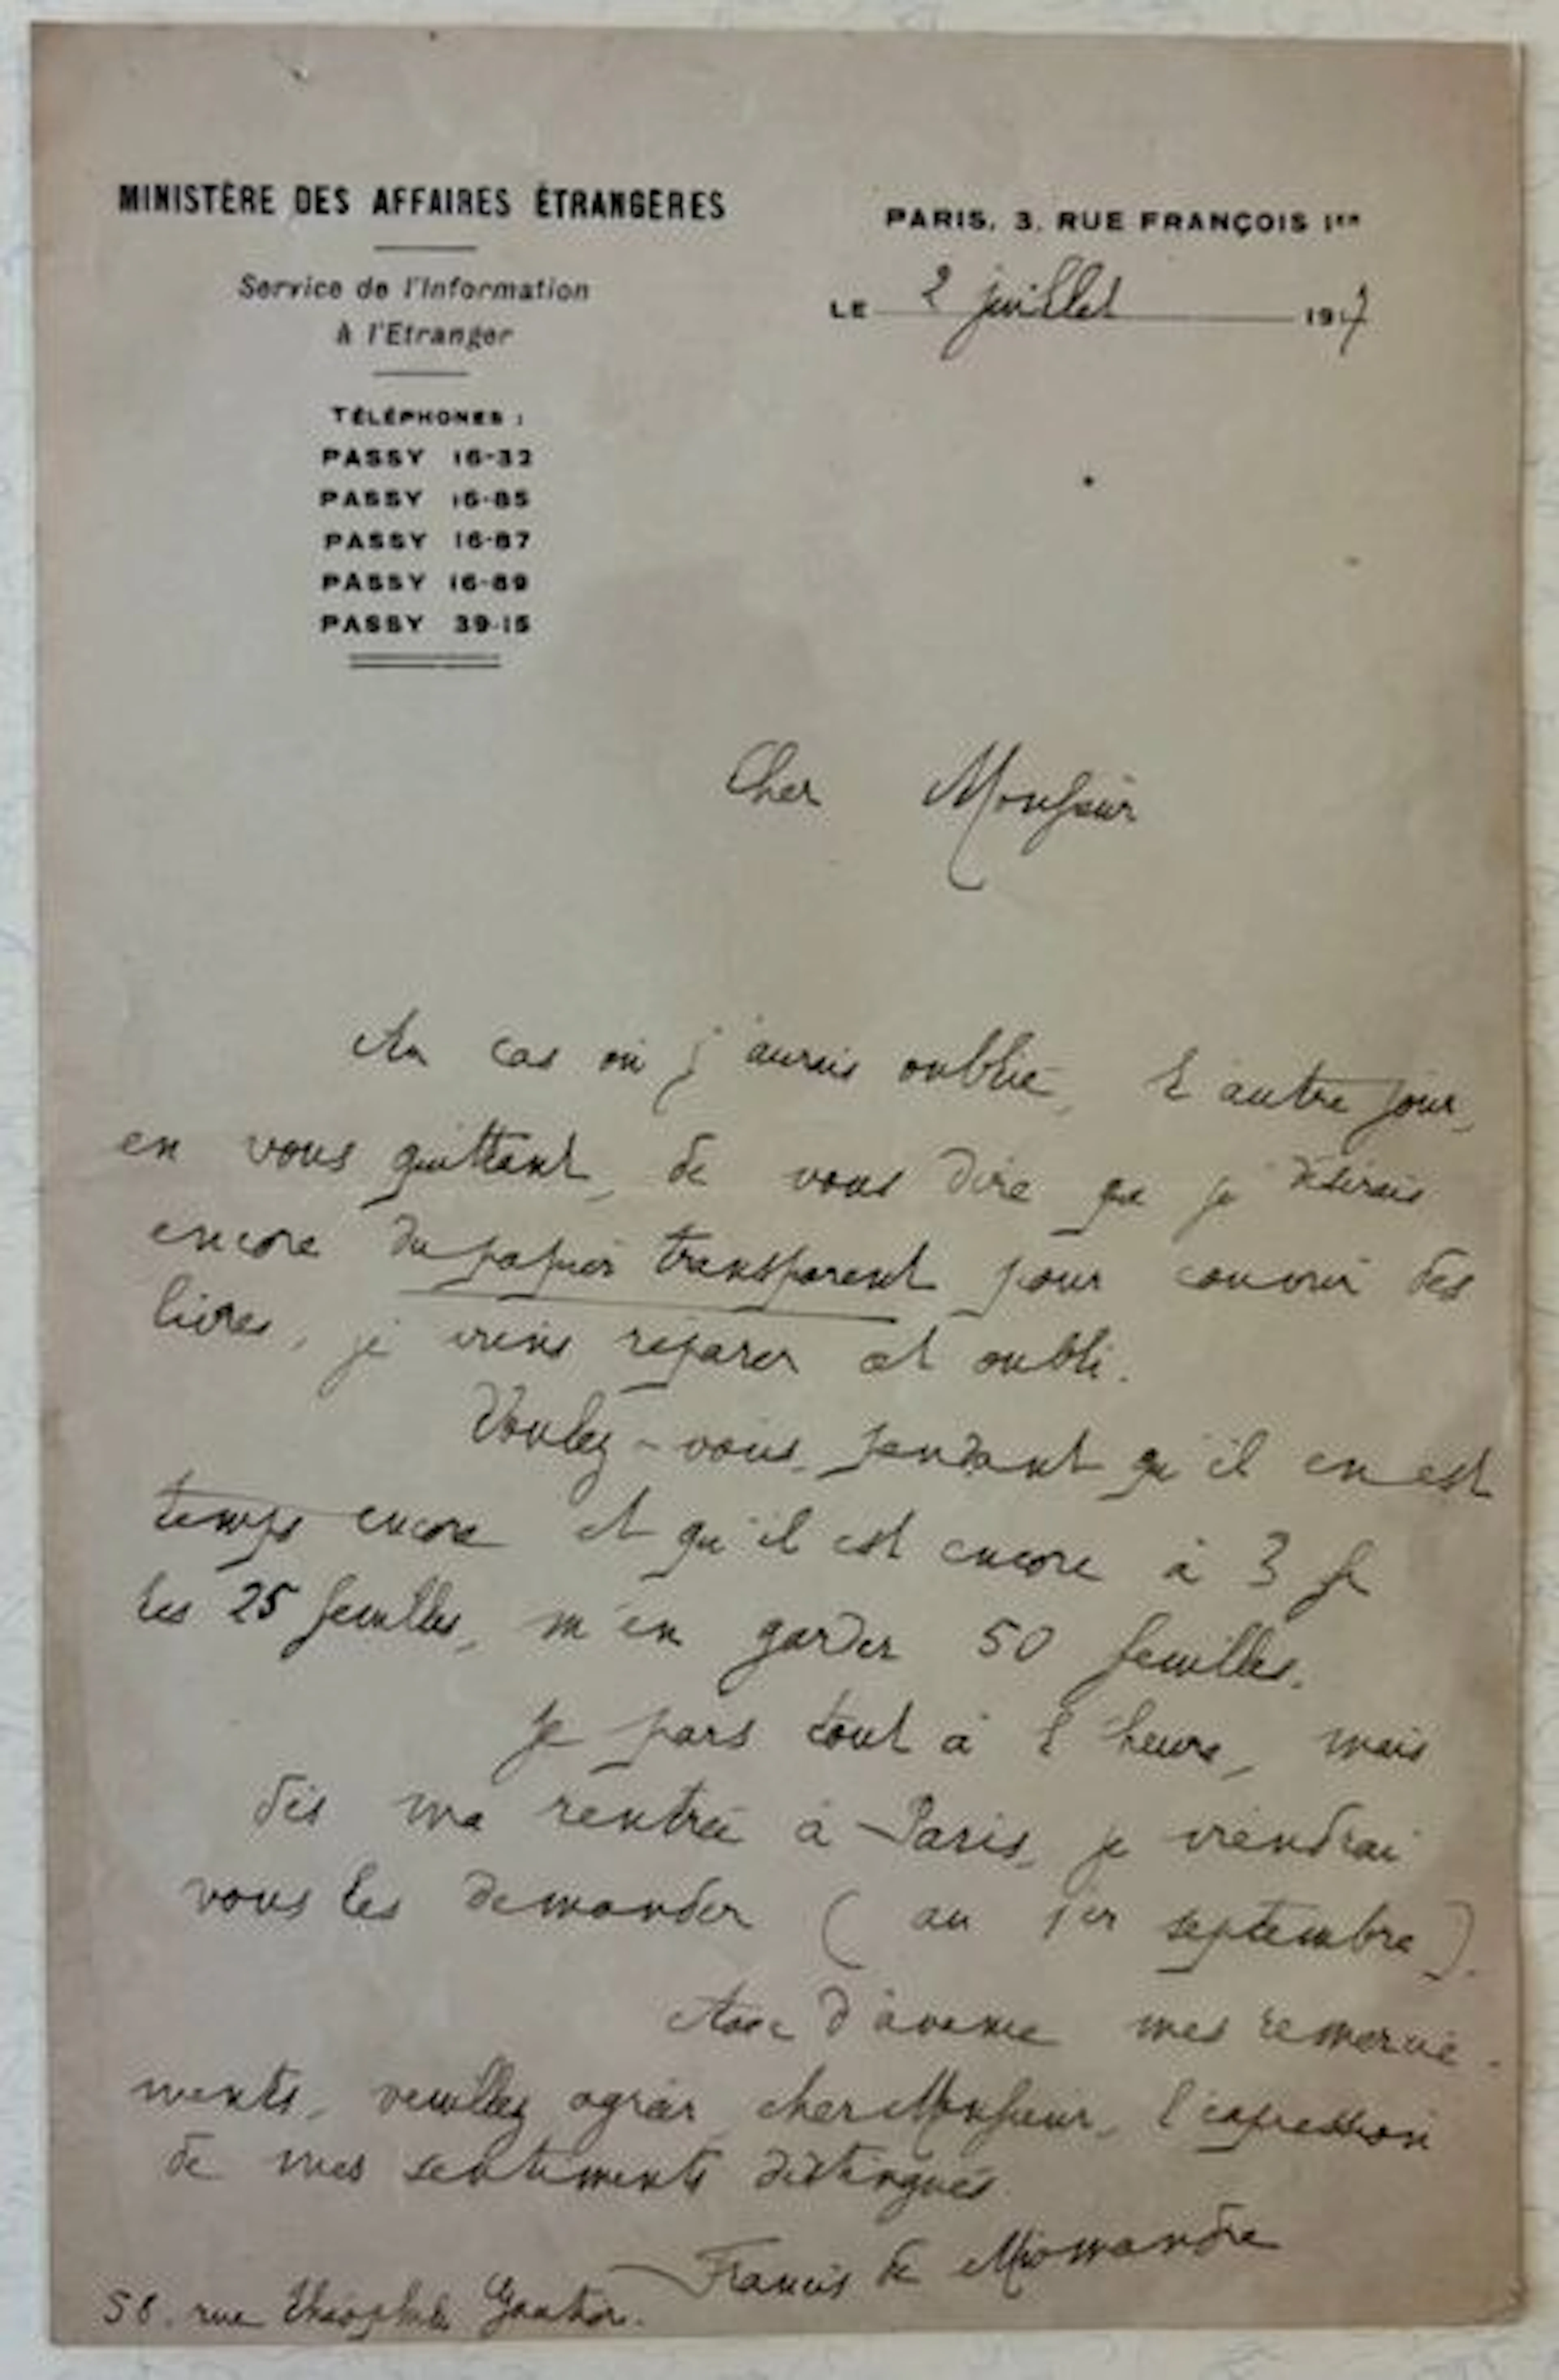 MINISTÈRE DES AFFAIRES ÉTRANGÈRES
Service de l'Information
à l'Etranger
TÉLÉPHONES :
PASSY 16-32
PASSY 16-85
PASSY 16-87
PASSY 16-89
PASSY 39-15
PARIS, 3, RUE FRANÇOIS 1ER
LE 2 juillet 1917
Cher Monsieur
Au cas où j'aurais oublié, l'autre jour,
en vous quittant, de vous dire que je désirais
encore du papier transparent pour couvrir des
livres, je viens réparer cet oubli.
Voulez-vous, pendant qu'il en est
temps encore et qu'il est encore à 3 fr
les 25 feuilles, m'en garder 50 feuilles.
Je pars tout à l'heure, mais
dès ma rentrée à Paris, je viendrai
vous les demander (au 1er septembre).
Avec d'avance mes remercie-
ments, veuillez agréer, cher Monsieur, l'expression
de mes sentiments distingués
Francis de Miomandre
58. rue Théophile Gautier.